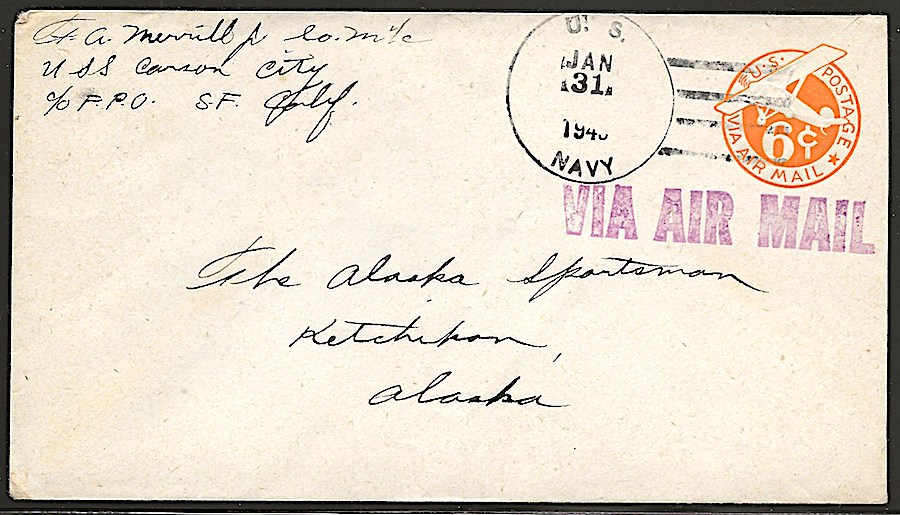 F. A. Merrill Jr. Co. M 1/c
USS Carson City
c/o F.P.O. S.F. Calif.
U. S.
JAN
31
194
NAVY
U.S. POSTAGE
6¢
VIA AIR MAIL
VIA AIR MAIL
The Alaska Sportsman
Ketchikan,
Alaska